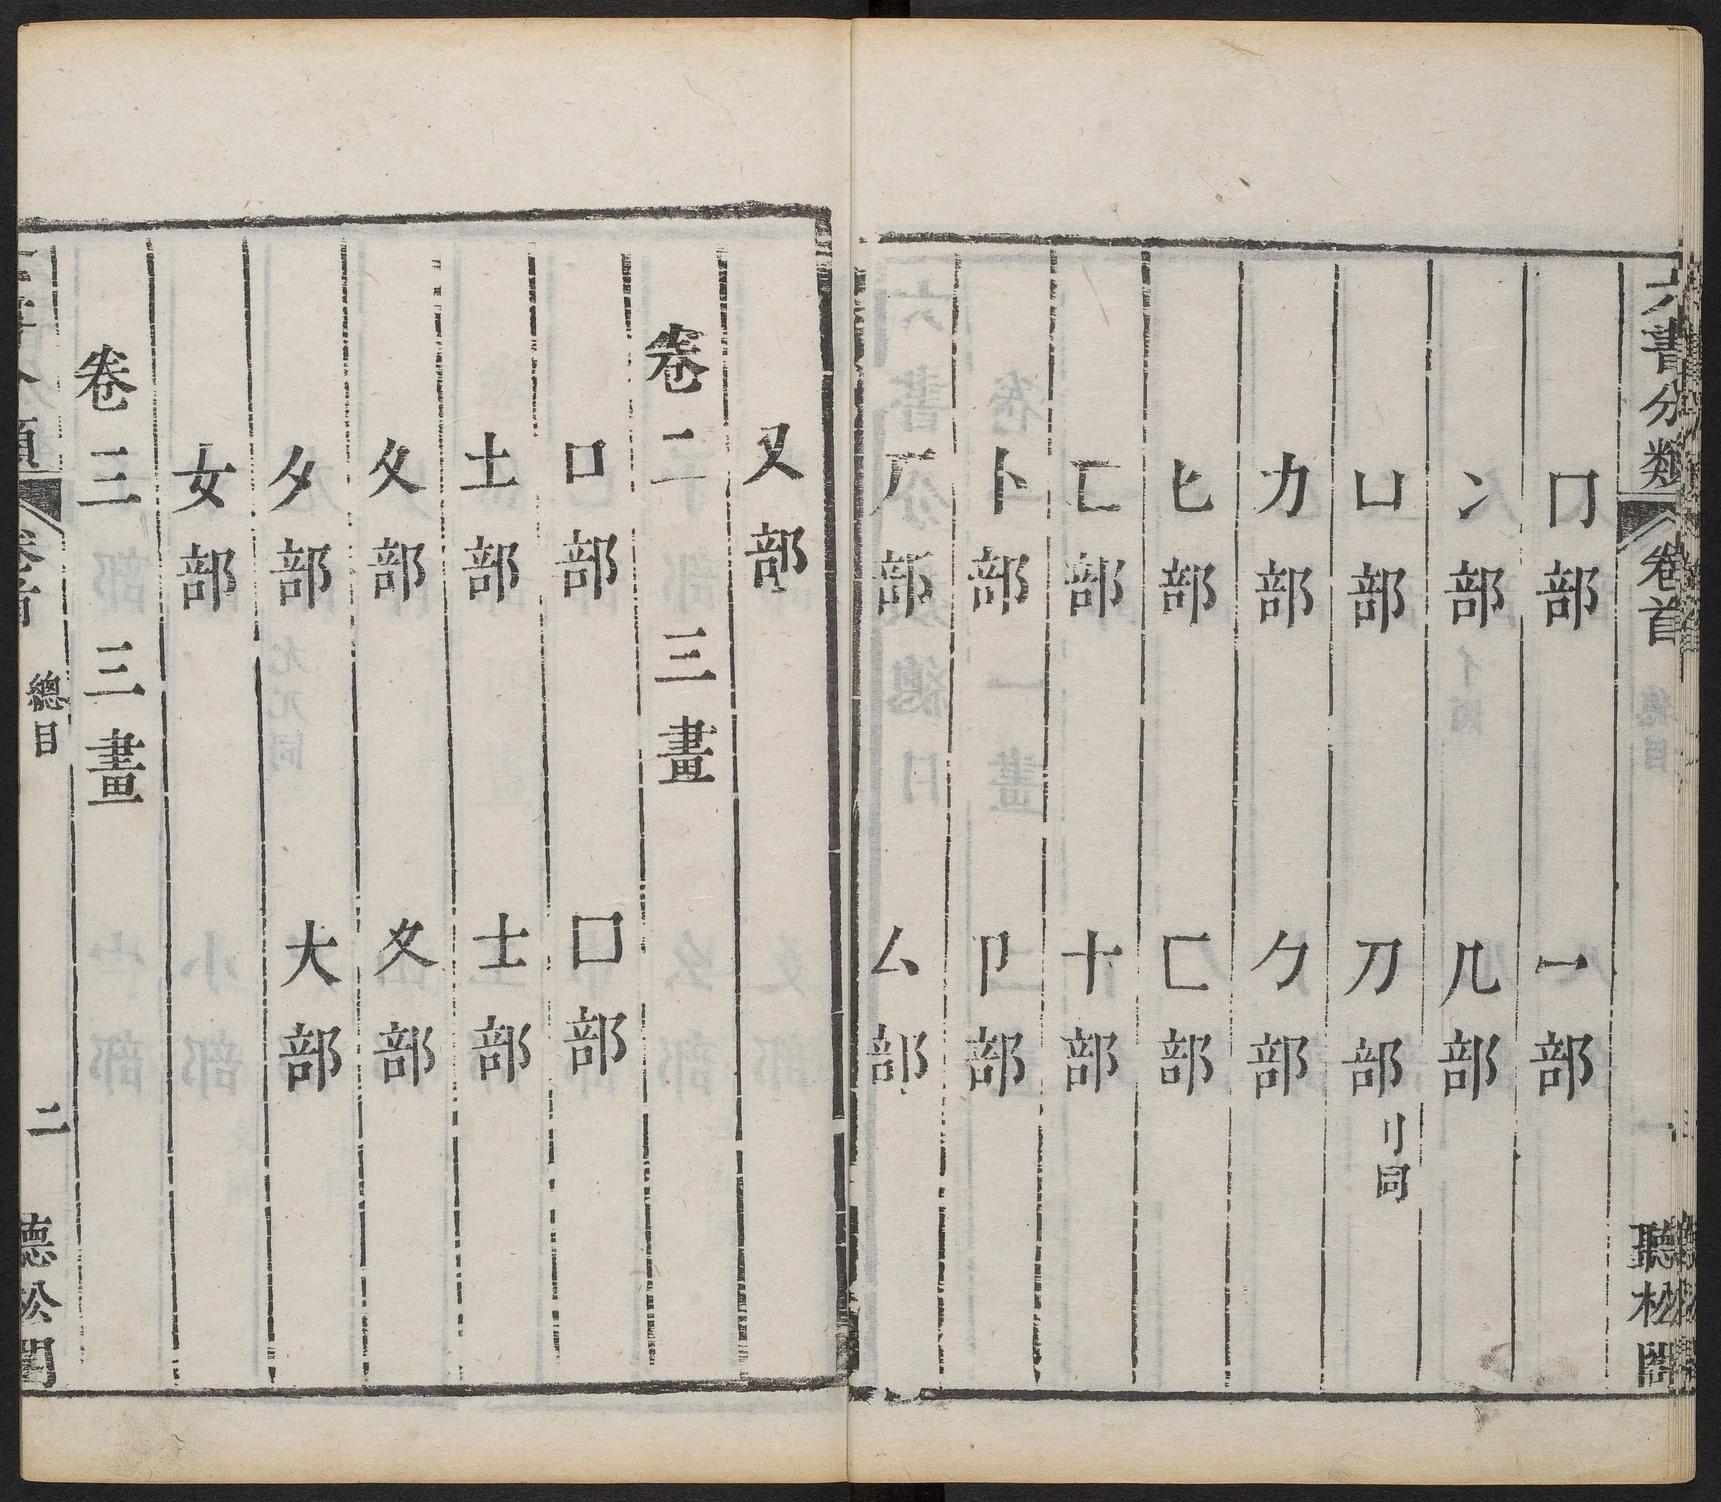 六書分類 卷首 聽松閣
冂部 冖部
冫部 几部
凵部 刀部 刂同
力部 勹部
匕部 匚部
匸部 十部
卜部 卩部
厂部 厶部
又部
卷二 三畫
口部 囗部
土部 士部
夂部 夊部
夕部 大部
女部
卷三 三畫
類 卷首 總目 二 聽松閣